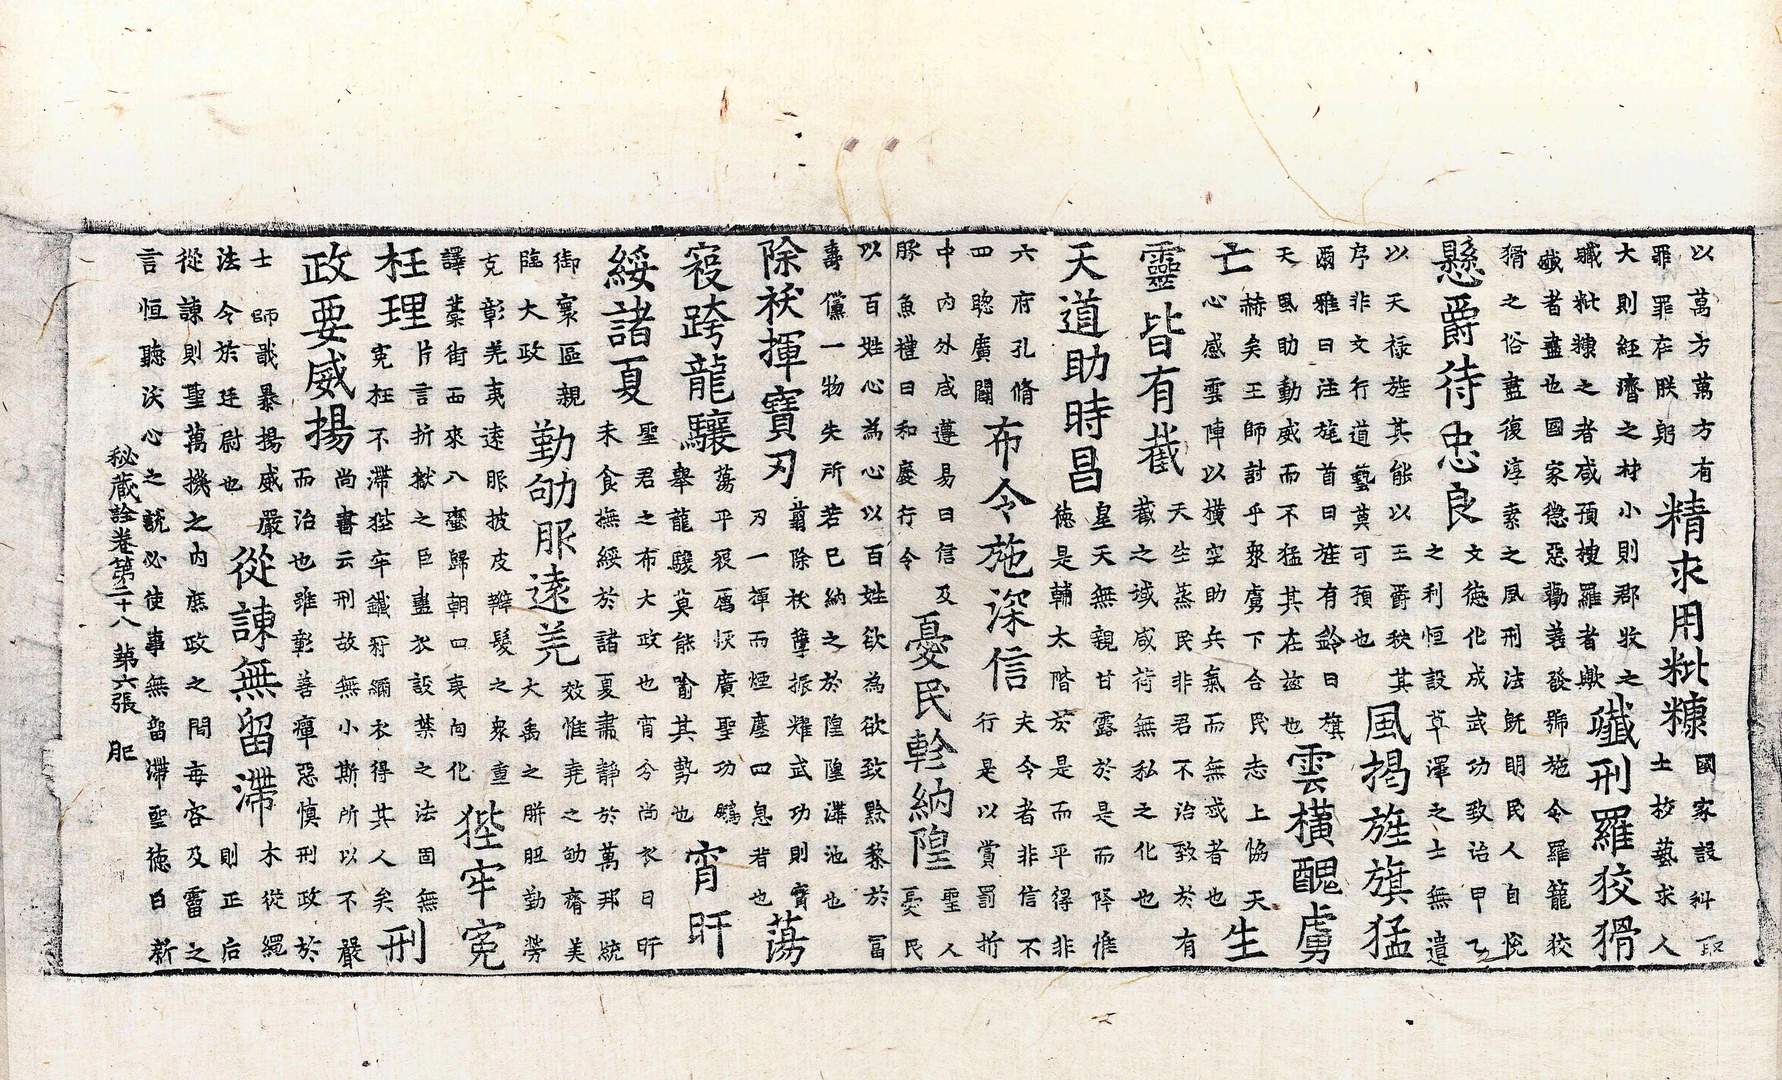 以萬方萬方有
罪罪在朕躬
精求用粃糠
國家設科取
士校藝求人
大則經濟之材小則郡牧之
職粃糠之者咸預搜羅者歟
殲刑羅狡猾
殲者盡也國家懲惡勸善發號施令羅籠狡
猾之俗盡復淳素之風刑法旣明民人自悅
懸爵待忠良
文德化成武功致治甲乙
之利恒設草澤之士無遺
以天禄旌其能以王爵秩其
序非文行道藝莫可預也
風揭旌旗猛
爾雅曰注旄首曰旌有鈴曰旗
天風助動威而不猛其在玆也
雲橫醜虜
亡
赫矣王師討乎衆虜下合民志上恊天
心感雲陣以橫空助兵氣而無忒者也
生
靈皆有截
天生蒸民非君不治致於有
截之域咸荷無私之化也
天道助時昌
皇天無親甘露於是而降惟
德是輔太階於是而平得非
六府孔脩
四聦廣闢
布令施深信
夫令者非信不
行是以賞罰折
中內外咸遵易曰信及
豚魚禮曰和慶行令
憂民軫納隍
聖人
憂民
以百姓心為心以百姓欲為欲致黔黎於富
壽儻一物失所若已納之於隍隍溝池也
除祅揮寶刃
翦除祅孽振耀武功則寶
刃一揮而煙塵四息者也
蕩
祲跨龍驤
蕩平祲厲恢廣聖功鵰
舉龍驤莫能喻其勢也
宵旰
綏諸夏
聖君之布大政也宵兮尚衣日旰
未食撫綏於諸夏肅静於萬邦統
御寰區親
臨大政
勤劬服遠羌
效惟尭之劬瘠美
大禹之胼胝勤勞
克彰羌夷遠服披皮辮髮之衆重
譯藁街而來八蠻歸朝四夷向化
狴牢寃
枉理
片言折獄之臣盡衣設禁之法固無
寃枉不滯狴牢鐵 衣得其人矣
刑
政要威揚
尚書云刑故無小斯所以不嚴
而治也雖彰善癉惡慎刑政於
士師戢暴揚威嚴
法令於廷尉也
從諫無留滯
木從繩
則正后
從諫則聖萬機之內庶政之間每容及霤之
言恒聽沃心之說必使事無留滯聖德日新
秘藏詮卷第二十八 第六張 肥